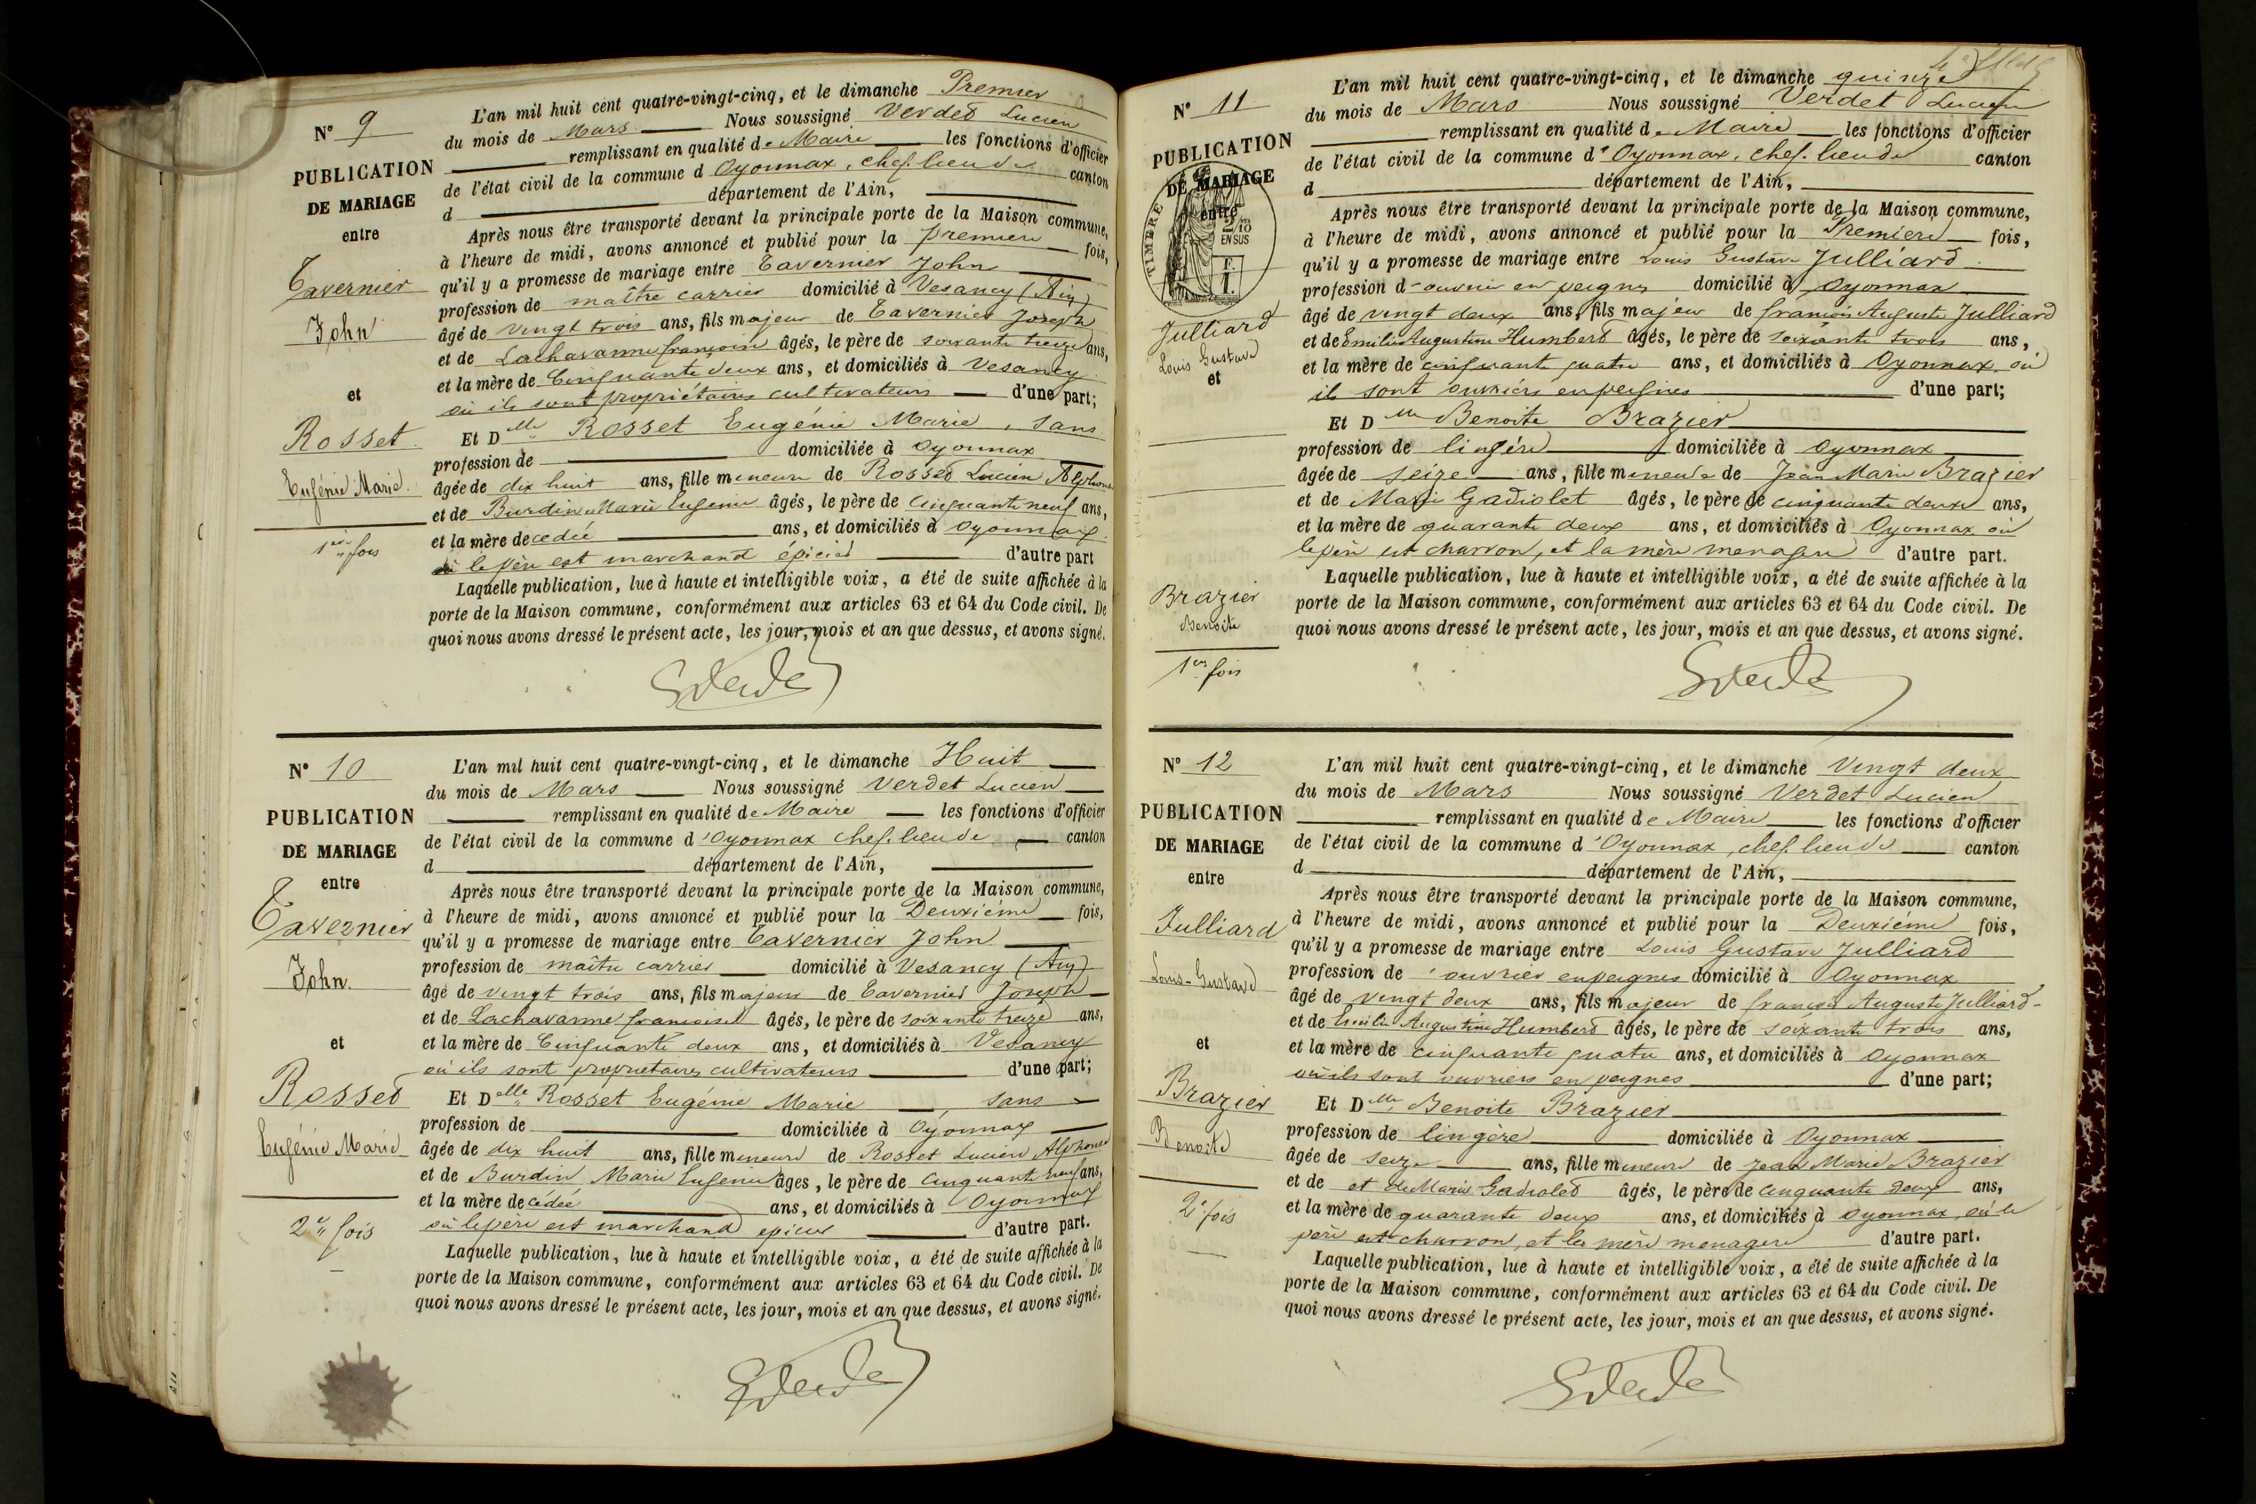 N° 9
PUBLICATION
DE MARIAGE
entre
Tavernier
John
et
Rosset
Eugénie Marie
1ère fois
L'an mil huit cent quatre-vingt-cinq, et le dimanche Premier
du mois de Mars Nous soussigné Verdet Lucien
remplissant en qualité de Maire les fonctions d'officier
de l'état civil de la commune d Oyonnax, chef-lieu de canton
d département de l'Ain,
Après nous être transporté devant la principale porte de la Maison commune,
à l'heure de midi, avons annoncé et publié pour la première fois,
qu'il y a promesse de mariage entre Tavernier John
profession de maître carrier domicilié à Vesancy (Ain)
âgé de vingt trois ans, fils majeur de Tavernier Joseph
et de Lachavanne françoise âgés, le père de soixante treize ans,
et la mère de Cinquante deux ans, et domiciliés à Vesancy
où ils sont propriétaires cultivateurs d'une part;
Et Dlle Rosset Eugénie Marie, sans
profession de domiciliée à Oyonnax
âgée de dix huit ans, fille mineure de Rosset Lucien Alphonse
et de Burdin Marie Eugenie âgés, le père de Cinquante neuf ans,
et la mère decedée ans, et domiciliés à Oyonnax
où le père est marchand épicier d'autre part
Laquelle publication, lue à haute et intelligible voix, a été de suite affichée à la
porte de la Maison commune, conformément aux articles 63 et 64 du Code civil. De
quoi nous avons dressé le présent acte, les jour, mois et an que dessus, et avons signé.
N° 10
PUBLICATION
DE MARIAGE
entre
Tavernier
John
et
Rosset
Eugénie Marie
2e fois
L'an mil huit cent quatre-vingt-cinq, et le dimanche Huit
du mois de Mars Nous soussigné Verdet Lucien
remplissant en qualité de Maire les fonctions d'officier
de l'état civil de la commune d'Oyonnax chef-lieu de canton
d département de l'Ain,
Après nous être transporté devant la principale porte de la Maison commune,
à l'heure de midi, avons annoncé et publié pour la Deuxième fois,
qu'il y a promesse de mariage entre Tavernier John
profession de maître carrier domicilié à Vesancy (Ain)
âgé de vingt trois ans, fils majeur de Tavernier Joseph
et de Lachavanne françoise âgés, le père de soixante treize ans,
et la mère de Cinquante deux ans, et domiciliés à Vesancy
où ils sont propriétaires cultivateurs d'une part;
Et Delle Rosset Eugénie Marie sans
profession de domiciliée à Oyonnax
âgée de dix huit ans, fille mineure de Rosset Lucien Alphonse
et de Burdin Marie Eugenie âges, le père de Cinquante neuf ans,
et la mère decédée ans, et domiciliés à Oyonnax
où le père est marchand epicier d'autre part.
Laquelle publication, lue à haute et intelligible voix, a été de suite affichée à la
porte de la Maison commune, conformément aux articles 63 et 64 du Code civil. De
quoi nous avons dressé le présent acte, les jour, mois et an que dessus, et avons signé.
N° 11
PUBLICATION
DE MARIAGE
entre
TIMBRE
2/10
EN SUS
Julliard
Louis Gustave
et
Brazier
Benoite
1ère fois
L'an mil huit cent quatre-vingt-cinq, et le dimanche quinze
du mois de Mars Nous soussigné Verdet Lucien
remplissant en qualité de Maire les fonctions d'officier
de l'état civil de la commune d'Oyonnax, chef-lieu de canton
d département de l'Ain,
Après nous être transporté devant la principale porte de la Maison commune,
à l'heure de midi, avons annoncé et publié pour la Première fois,
qu'il y a promesse de mariage entre Louis Gustave Julliard
profession d'ouvrier en peignes domicilié à Oyonnax
âgé de vingt deux ans, fils majeur de françois Auguste Julliard
et de Emilie Augustine Humbert âgés, le père de soixante trois ans,
et la mère de cinquante quatre ans, et domiciliés à Oyonnax où
il sont ouvriers en peignes d'une part;
Et Dlle Benoite Brazier
profession de lingère domiciliée à Oyonnax
âgée de seize ans, fille mineure de Jean Marie Brazier
et de Marie Gadiolet âgés, le père de cinquante deux ans,
et la mère de quarante deux ans, et domiciliés à Oyonnax où
le père est charron, et la mère menagère d'autre part.
Laquelle publication, lue à haute et intelligible voix, a été de suite affichée à la
porte de la Maison commune, conformément aux articles 63 et 64 du Code civil. De
quoi nous avons dressé le présent acte, les jour, mois et an que dessus, et avons signé.
N° 12
PUBLICATION
DE MARIAGE
entre
Julliard
Louis-Gustave
et
Brazier
Benoite
2e fois
L'an mil huit cent quatre-vingt-cinq, et le dimanche Vingt deux
du mois de Mars Nous soussigné Verdet Lucien
remplissant en qualité de Maire les fonctions d'officier
de l'état civil de la commune d'Oyonnax, chef-lieu de canton
d département de l'Ain,
Après nous être transporté devant la principale porte de la Maison commune,
à l'heure de midi, avons annoncé et publié pour la Deuxième fois,
qu'il y a promesse de mariage entre Louis Gustave Julliard
profession de ouvrier en peignes domicilié à Oyonnax
âgé de vingt deux ans, fils majeur de françois Auguste Julliard
et de Emilie Augustine Humbert âgés, le père de soixante trois ans,
et la mère de cinquante quatre ans, et domiciliés à Oyonnax
où ils sont ouvriers en peignes d'une part;
Et Dlle Benoite Brazier
profession de lingère domiciliée à Oyonnax
âgée de seize ans, fille mineure de Jean Marie Brazier
et de et de Marie Gadiolet âgés, le père de cinquante deux ans,
et la mère de quarante deux ans, et domiciliés à Oyonnax, où le
père est charron, et la mère menagère d'autre part.
Laquelle publication, lue à haute et intelligible voix, a été de suite affichée à la
porte de la Maison commune, conformément aux articles 63 et 64 du Code civil. De
quoi nous avons dressé le présent acte, les jour, mois et an que dessus, et avons signé.